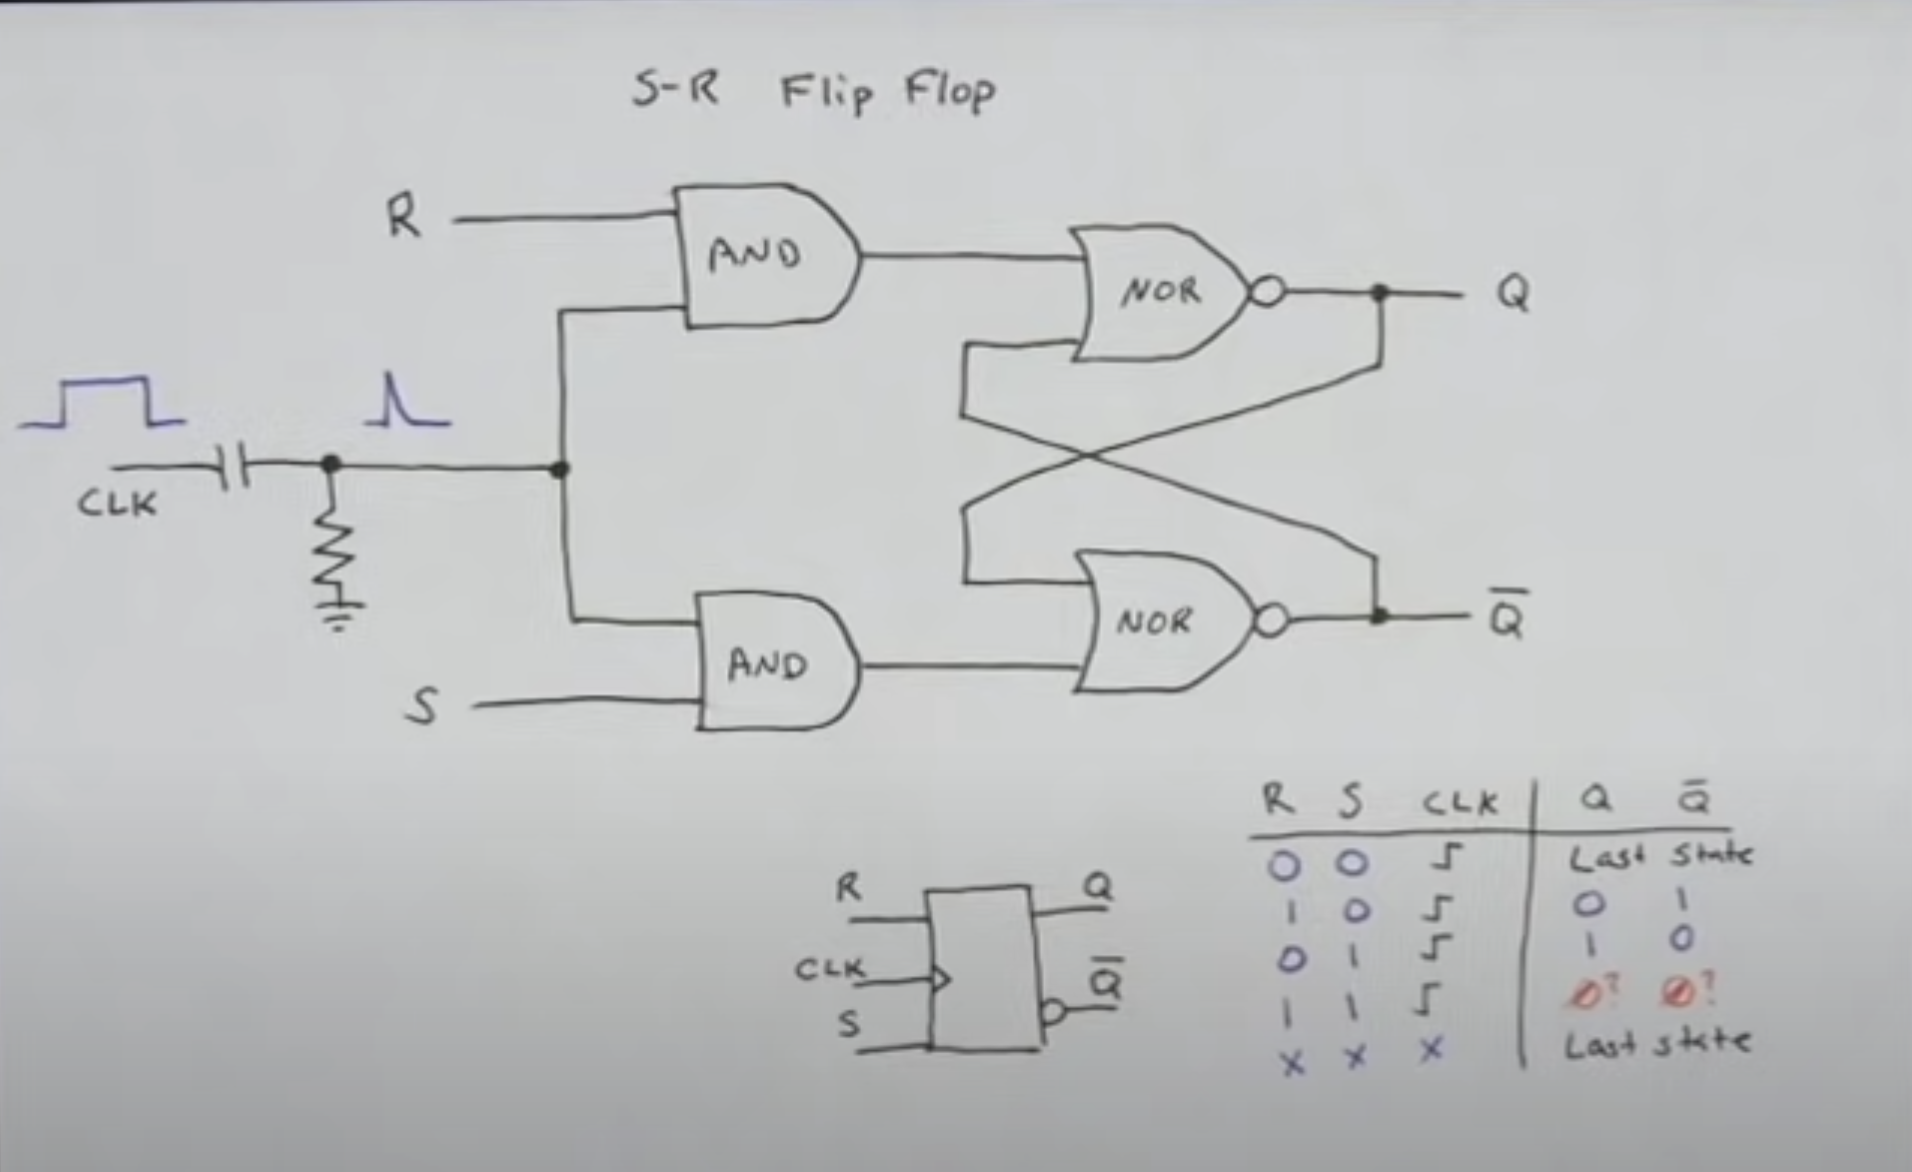 S-R Flip Flop
R
AND
NOR
Q
CLK
AND
NOR
Q̅
S
R S CLK Q Q̅
0 0 Last State
1 0 0 1
0 1 1 0
1 1 0? 0?
X X X Last state
R
Q
CLK
Q̅
S